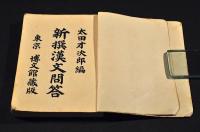 太田才次郎編
新撰漢文問答
東京 博文館藏版